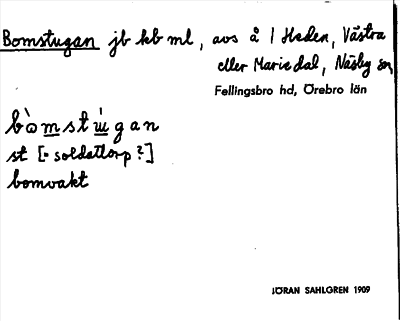 Bomstugan jb kb ml, avs å 1 Heden, Västra
eller Mariedal, Näsby sn,
Fellingsbro hd, Örebro län
bòmstùgan
st [= soldattorp?]
bomvakt
JÖRAN SAHLGREN 1909